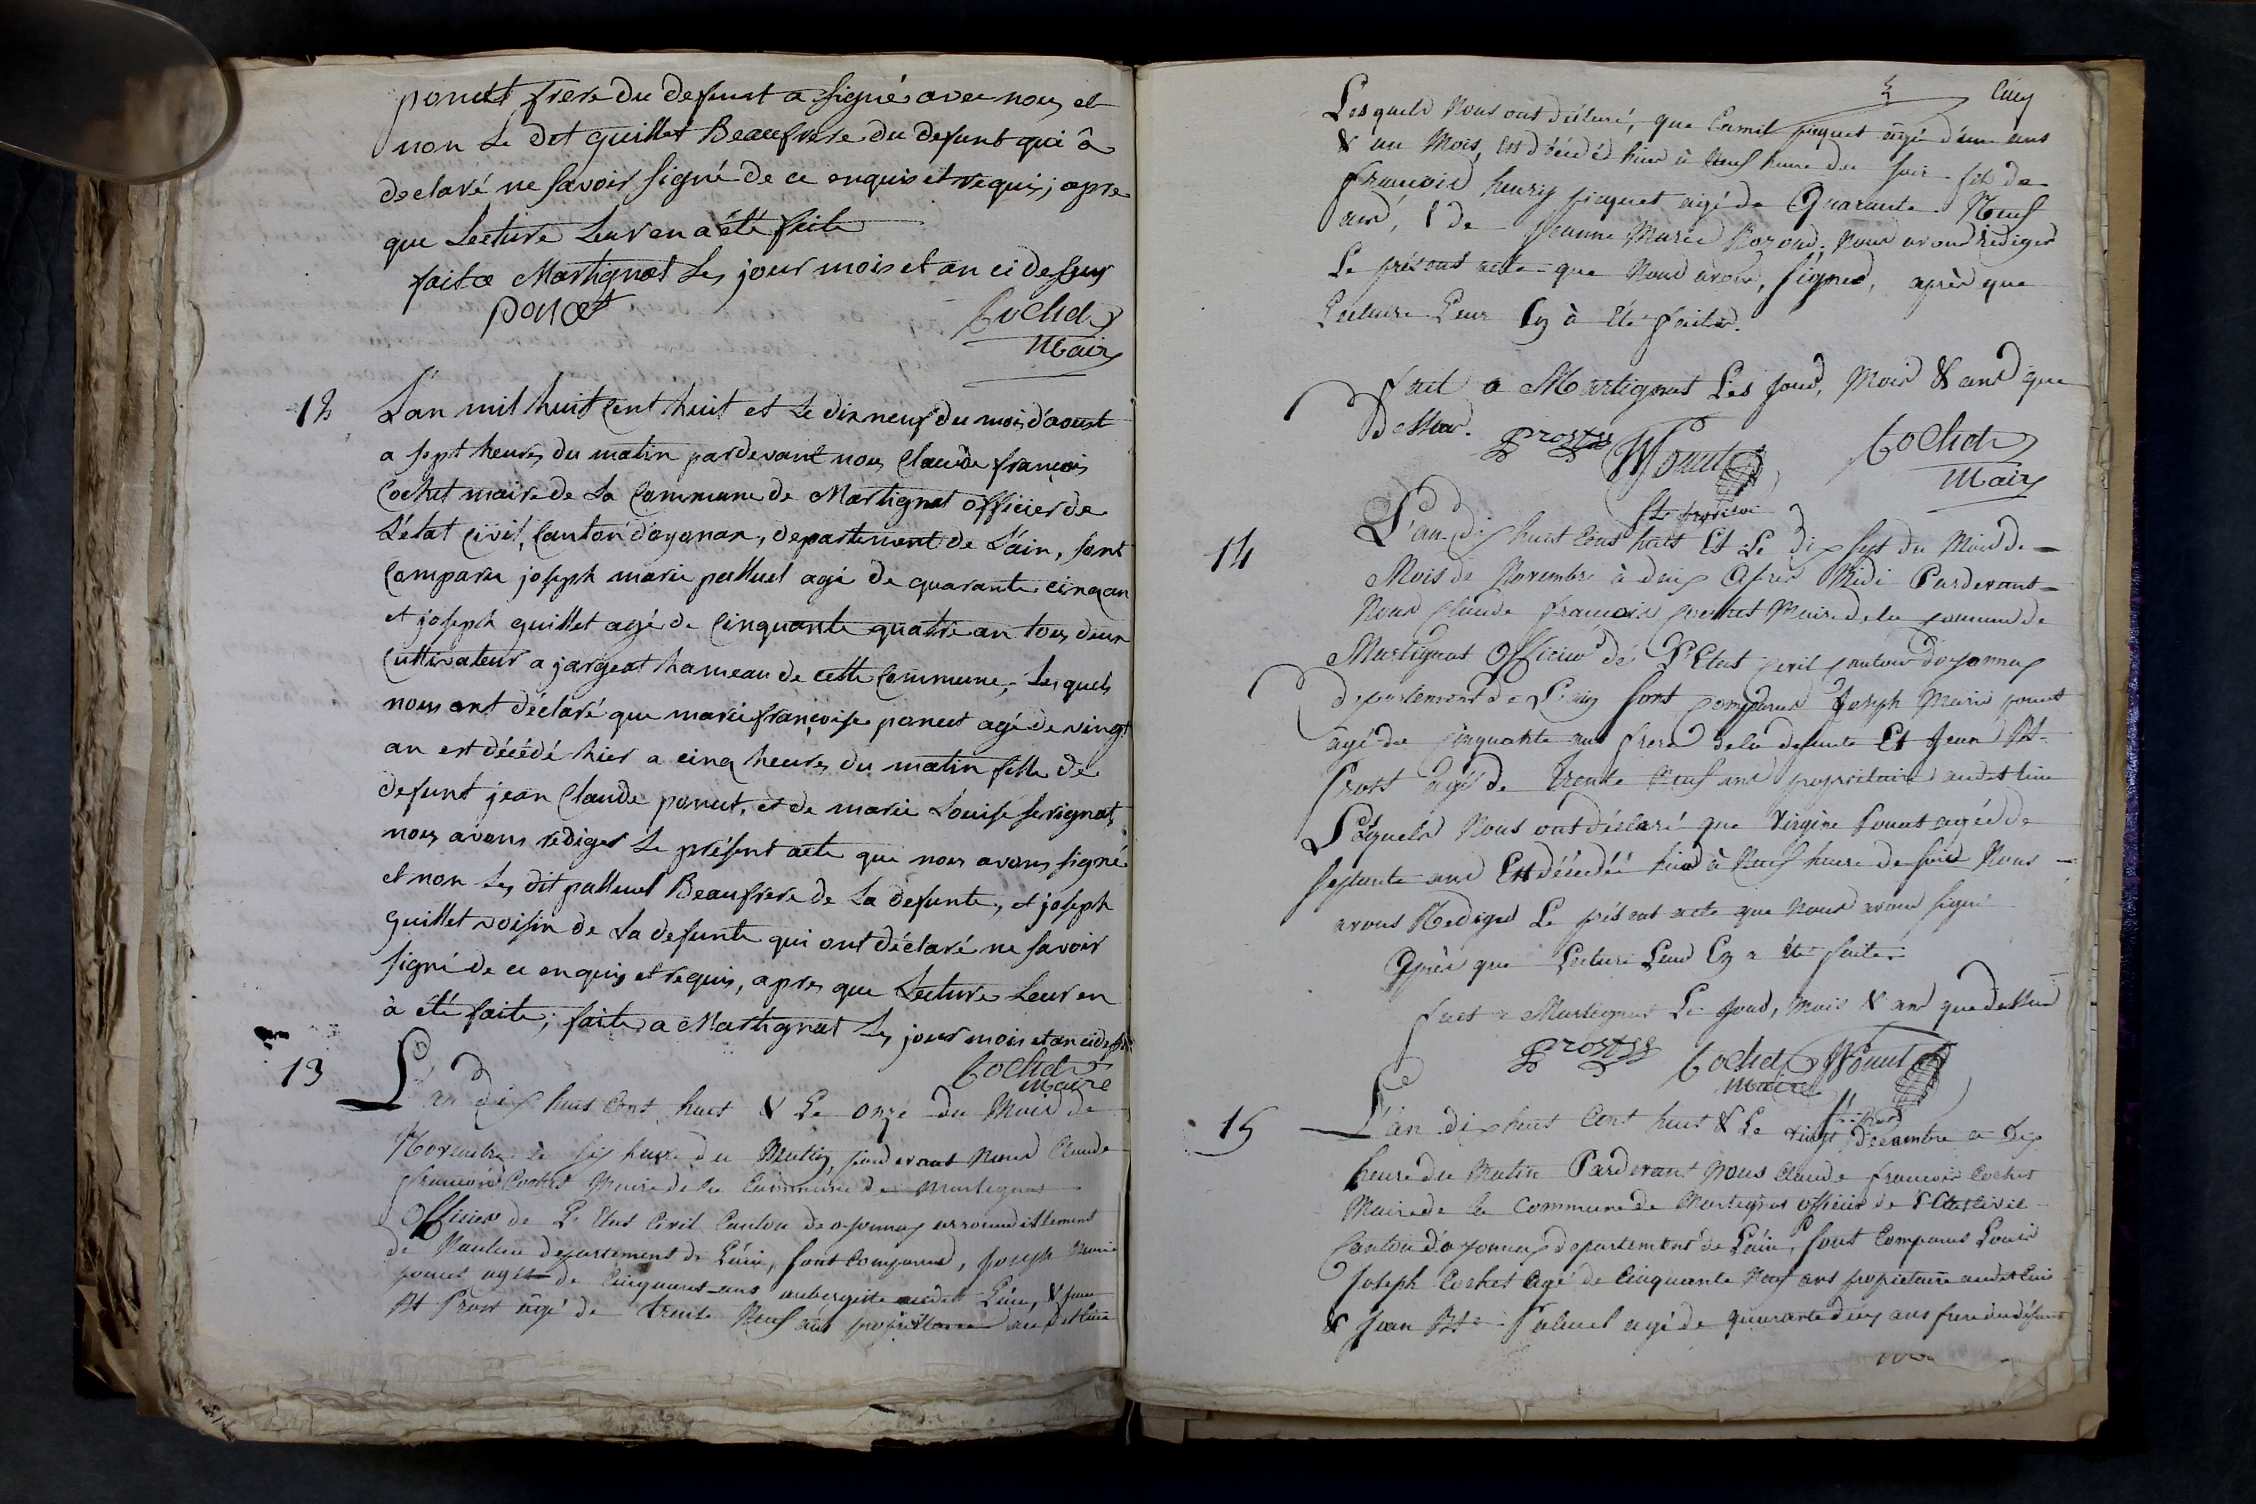 ponut frere du defunt a signé avec nous et
non Le dit guillet Beaufrere du defunt qui â
declaré ne savoir signé de ce enquis et requis; apres
que Lecture Leur en a été faite
fait a Martignat Les jour mois et an ci dessus
ponct
Cochet
Maire
12
L'an mil huit Cent huit et Le dix neuf du mois d'aoust
a sept heures du matin pardevant nous Claude françois
Cochet maire de La Commune de Martignat officier de
L'état Civil, Canton d'oyonax, departement de L'ain, sont
Comparu joseph marie palluel agé de quarante cinq an
et joseph guillet agé de Cinquante quatre an tous deux
Cultivateur a jargeat hameau de cette Commune, Lesquels
nous ont déclaré que marie françoise ponut agé de vingt
an est décédé hier a cinq heures du matin fille de
defunt jean Claude ponut, et de marie Louise Sevignat,
nous avons rediger Le présent acte que nous avons signé
et non Les dit palluel Beaufrere de La defunte, et joseph
Guillet voisin de La defunte qui ont déclaré ne savoir
signé de ce enquis et requis, apres que Lecture Leur en
à été faite; faite a Martignat Les jour mois et an ci dessus
Cochet
maire
13
L'an dix huit Cent huit & Le onze du Mois de
Novembre à six heure du Matin, pardevant Nous Claude
François Cochet Maire de la Commune de Martignat
Officier de L'Etat Civil Canton de oyonnax arrondissement
de Nantua departement de L'ain, sont Comparus, Joseph Marie
ponut agé de Cinquante ans aubergiste audit Lieu, & jean
Bte Prost âgé de trente Neuf ans propriétaire au dit Lieu
5 Cinq
Lesquels Nous ont déclaré, que Camil piquet âgé d'une ans
& un Mois, est décédé hier à Neuf heure du soir fils de
François henry piquet agé de Quarante Neuf
ans, & de Jeanne Marie Rozand; Nous avons Rediger
Le présent acte que Nous avons, signés, après que
Lecture Leur En à été faite.
Fait a Martignat Les Jour, Mois & ans que
Dessus.
Prost JB Ponut
Cochet
Maire
14
L'an dix huit Cent huit Et Le dix sept du Mois de
Mois de Novembre à deux Après Midi Pardevant
Nous Claude François Cochet Maire de la commune de
Martignat Officier de L'Etat Civil Canton d'oyonnax
departement de L'ain sont Comparus Joseph Marie ponut
âgé de Cinquante ans frere de la defunte Et Jean Bte
Prost agé de trente Neuf ans propriétaire audit lieu
Lesquels Nous ont déclaré que Virgine Ponut agée de
Septante ans Est décédée hier à Neuf heure de soir Nous
avons Rediger Le présent acte que Nous avons signé
Après que Lecture Leur En a été faite
Fait a Martignat Le Jour, Mois & ans que dessus
Prost JB Cochet Ponut
Maire
15
L'an dix huit Cent huit & Le vingt Décembre a dix
heure du Matin Pardevant Nous Claude François Cochet
Maire de la Commune de Martignat officier de L'Etat Civil
Canton d'oyonnax departement de L'ain, sont Comparus Louis
Joseph Cochet agé de Cinquante Neuf ans propriétaire audit Lieu
& Jean Bte Paluel agé de quarante deux ans frere du défunt